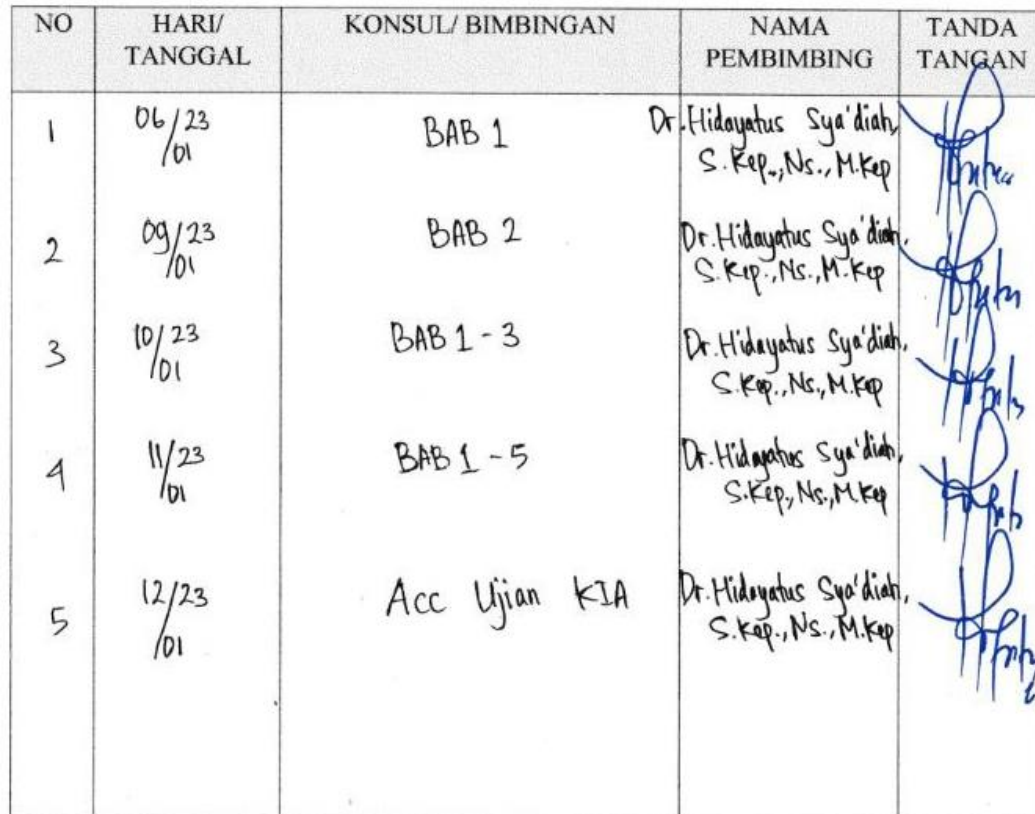 NO HARI/ TANGGAL KONSUL/ BIMBINGAN NAMA PEMBIMBING TANDA TANGAN
1 06/23 /01 BAB 1 Dr.Hidayatus Sya'diah, S.Kep.,Ns.,M.Kep
2 09/23 /01 BAB 2 Dr.Hidayatus Sya'diah, S.Kep.,Ns.,M.Kep
3 10/23 /01 BAB 1 - 3 Dr.Hidayatus Sya'diah, S.Kep.,Ns.,M.Kep
4 11/23 /01 BAB 1 - 5 Dr.Hidayatus Sya'diah, S.Kep.,Ns.,M.Kep
5 12/23 /01 Acc Ujian KIA Dr.Hidayatus Sya'diah, S.Kep.,Ns.,M.Kep